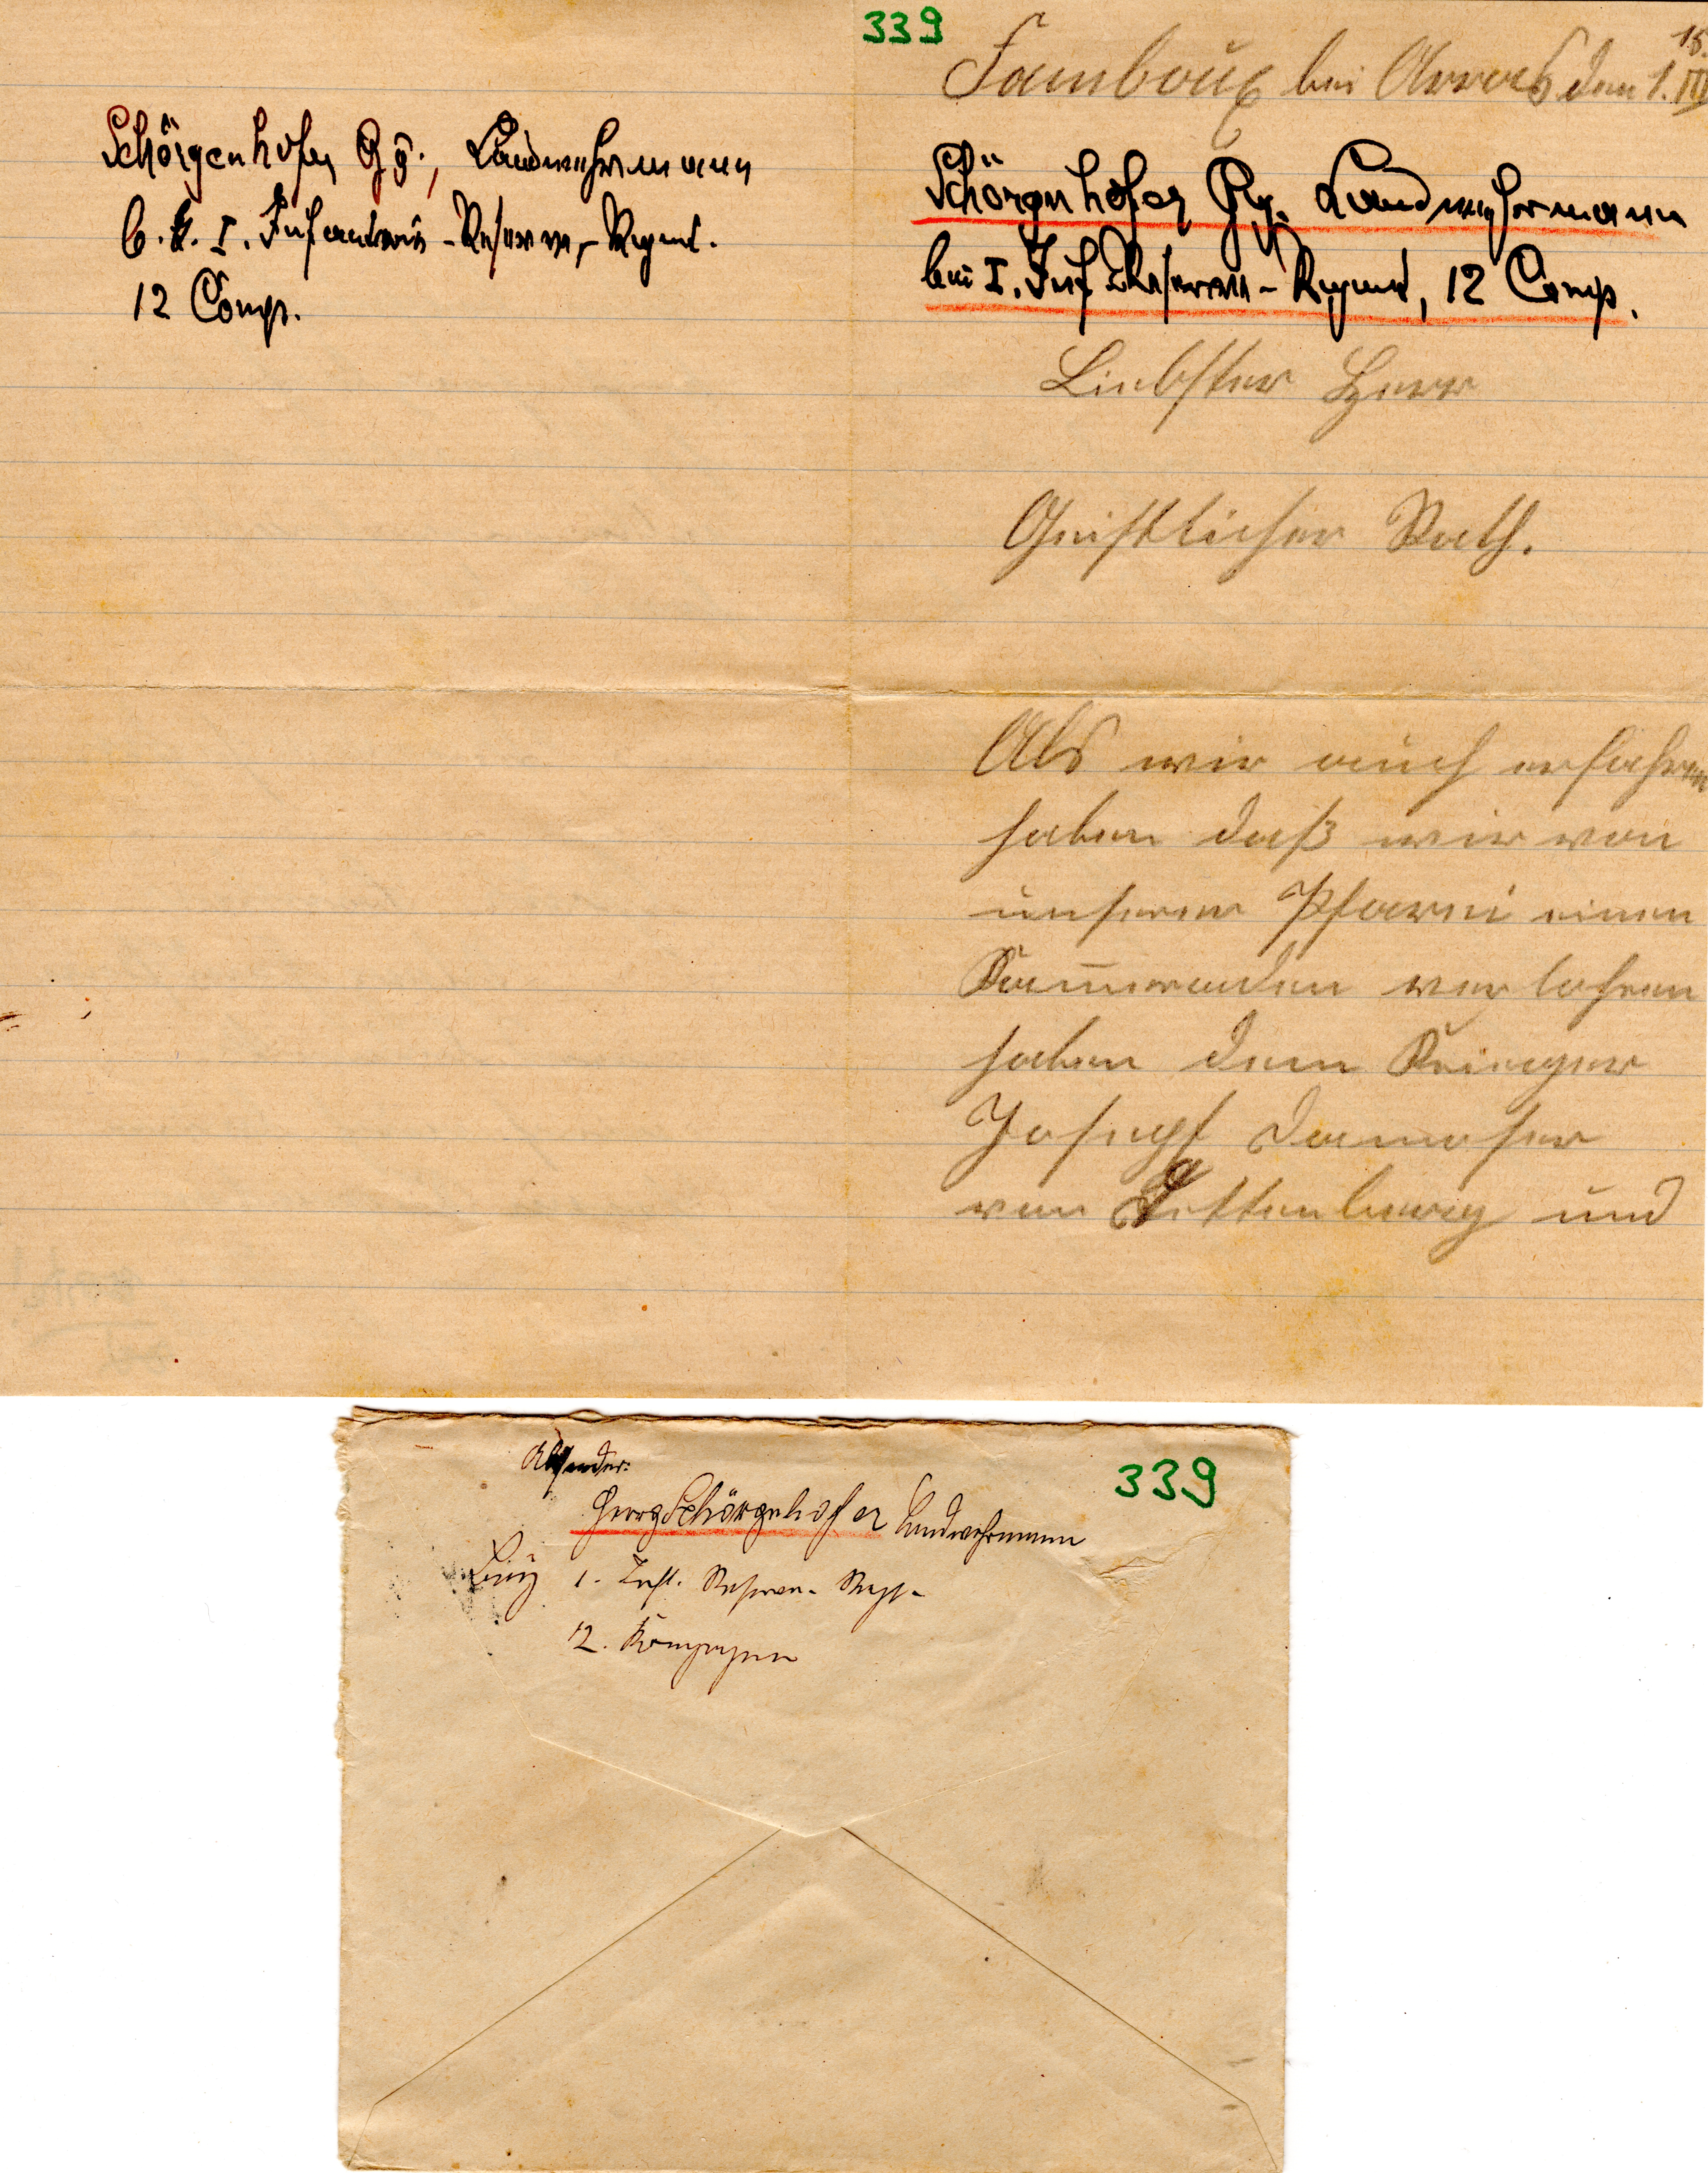 Schörgenhofer Gg., Landwehrmann
b. k. I. Infanterie-Reserve-Regmt.
12 Comp.
339
Famboux bei Arras den 1. III
15.
Schörgenhofer Gg. Landwehrmann
bei I. Inf. Reserve-Regmt, 12 Comp.
Liebster Herr
Geistlicher Rath.
Als wir auch erfahren
haben daß wir von
unserer Pfarrei einen
Kammeraden verlohren
haben dem Krieger
Joseph Damoser
von Dettenberg und
Absender:
339
Georg Schörgenhofer Landwehrmann
1. Inft. Reserve-Regt.
12. Kompagnie